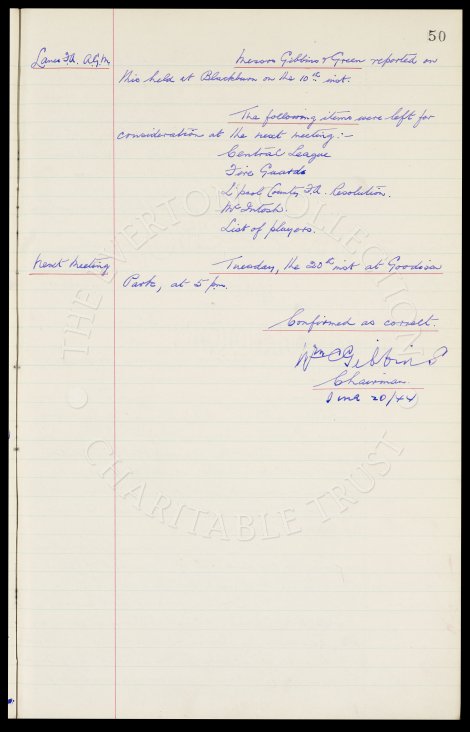 50
Lancs F.A. A.G.M. Messrs Gibbins & Green reported on
this held at Blackburn on the 10th inst.
The following items were left for
consideration at the next meeting:-
Central League
Fire Guards
L'pool County F.A. Resolution.
McIntosh.
List of players.
Next Meeting Tuesday, the 20th inst at Goodison
Park, at 5 pm.
Confirmed as correct.
Wm C Gibbins
Chairman.
June 20/44
THE EVERTON COLLECTION
CHARITABLE TRUST